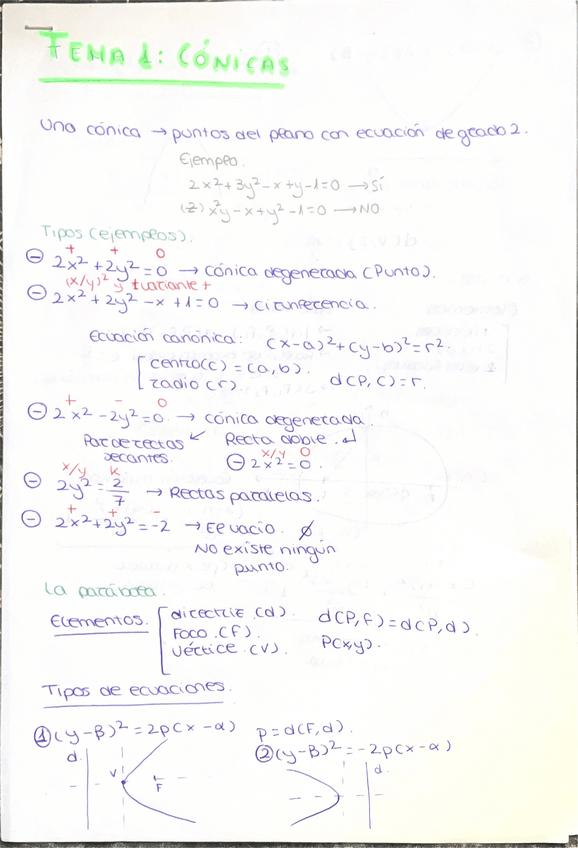 TEMA 1: CÓNICAS
Una cónica → puntos del plano con ecuación de grado 2.
Ejemplo.
2x²+3y²-x+y-1=0 → SÍ
(2) x²y-x+y²-1=0 → NO
Tipos (ejemplos).
+ + 0
⊖ 2x²+2y²=0 → cónica degenerada (Punto).
(x/y)² y +variante+
⊖ 2x²+2y²-x+1=0 → circunferencia.
Ecuación canónica: (x-a)²+(y-b)²=r².
centro(c)=(a,b).
radio (r). d(P,C)=r.
+ - 0
⊖ 2x²-2y²=0 → cónica degenerada.
Par de rectas secantes. ↙ Recta doble. ↲
x/y 0
⊖ 2x²=0.
x/y k
⊖ 2y²=2/7 → Rectas paralelas.
+ + -
⊖ 2x²+2y²=-2 → El vacío. ∅
No existe ningún
punto.
La parábola.
Elementos. directriz (d). d(P,F)=d(P,d).
Foco (F). P(x,y).
Vértice (V).
Tipos de ecuaciones.
① (y-β)²=2p(x-α) p=d(F,d).
② (y-β)²=-2p(x-α)
d. V F
d.